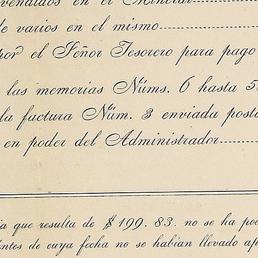 de varios en el mismo
por el Señor Tesorero para pago
las memorias Núms. 6 hasta
la factura Núm. 3 enviada
en poder del Administrador
que resulta de $ 199. 83. no se ha
de cuya fecha no se habian llevado